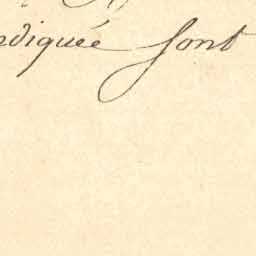 ndiquée sont